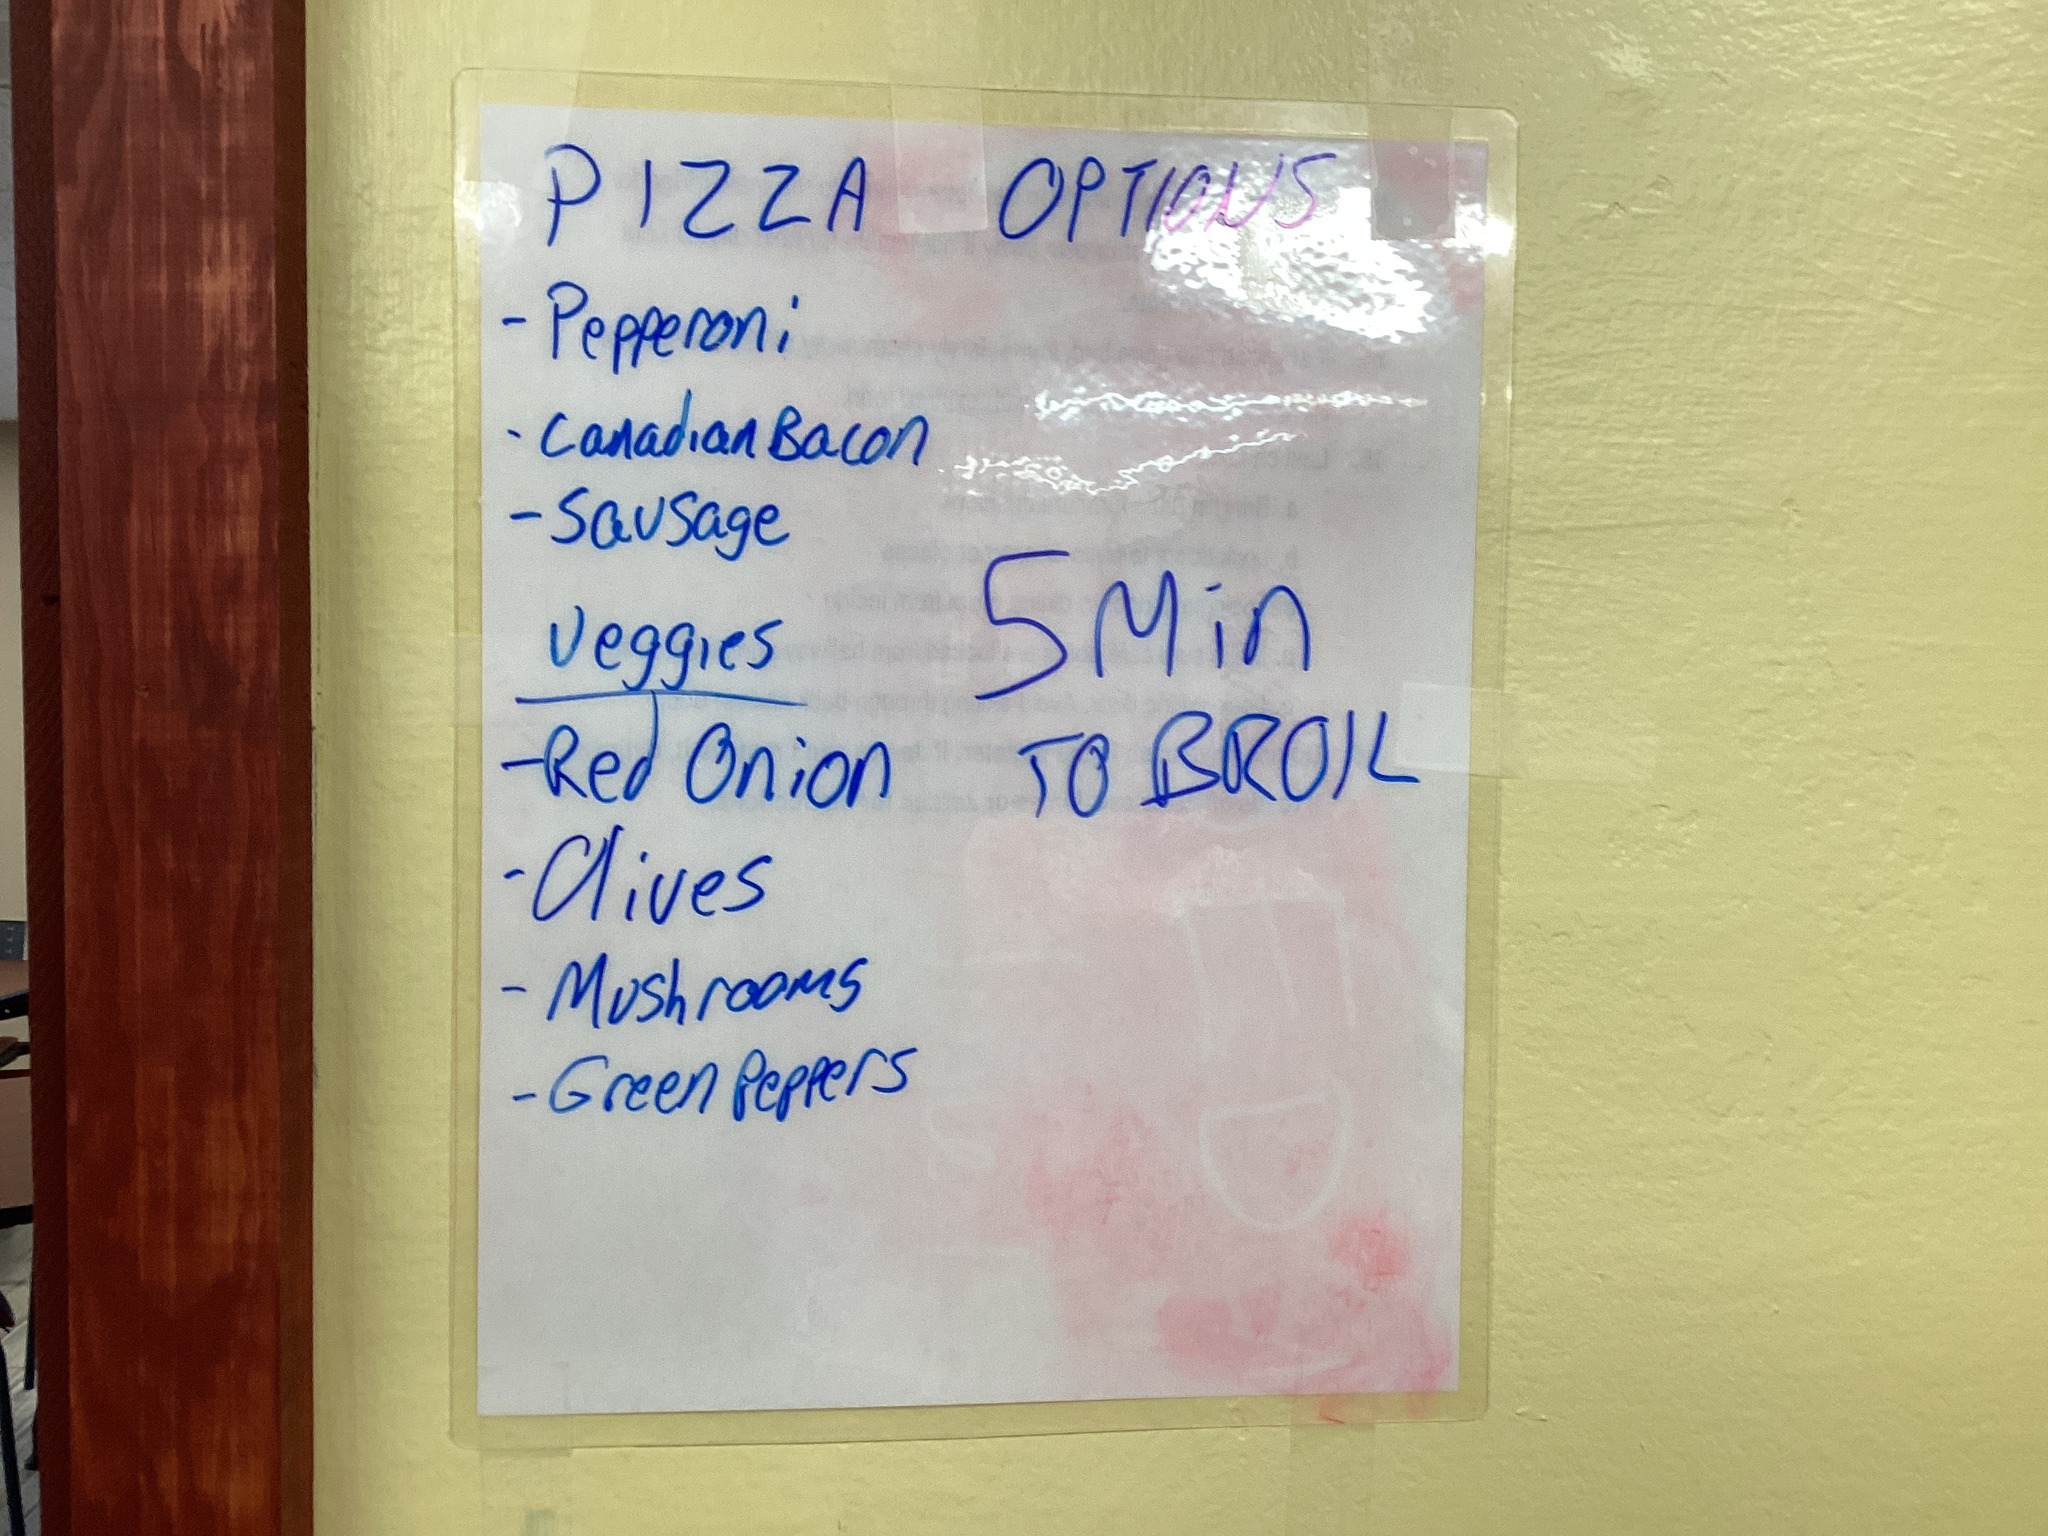 PIZZA OPTIONS
- Pepperoni
- Canadian Bacon
- Sausage
Veggies
- Red Onion
- Olives
- Mushrooms
- Green Peppers
5 Min
TO BROIL